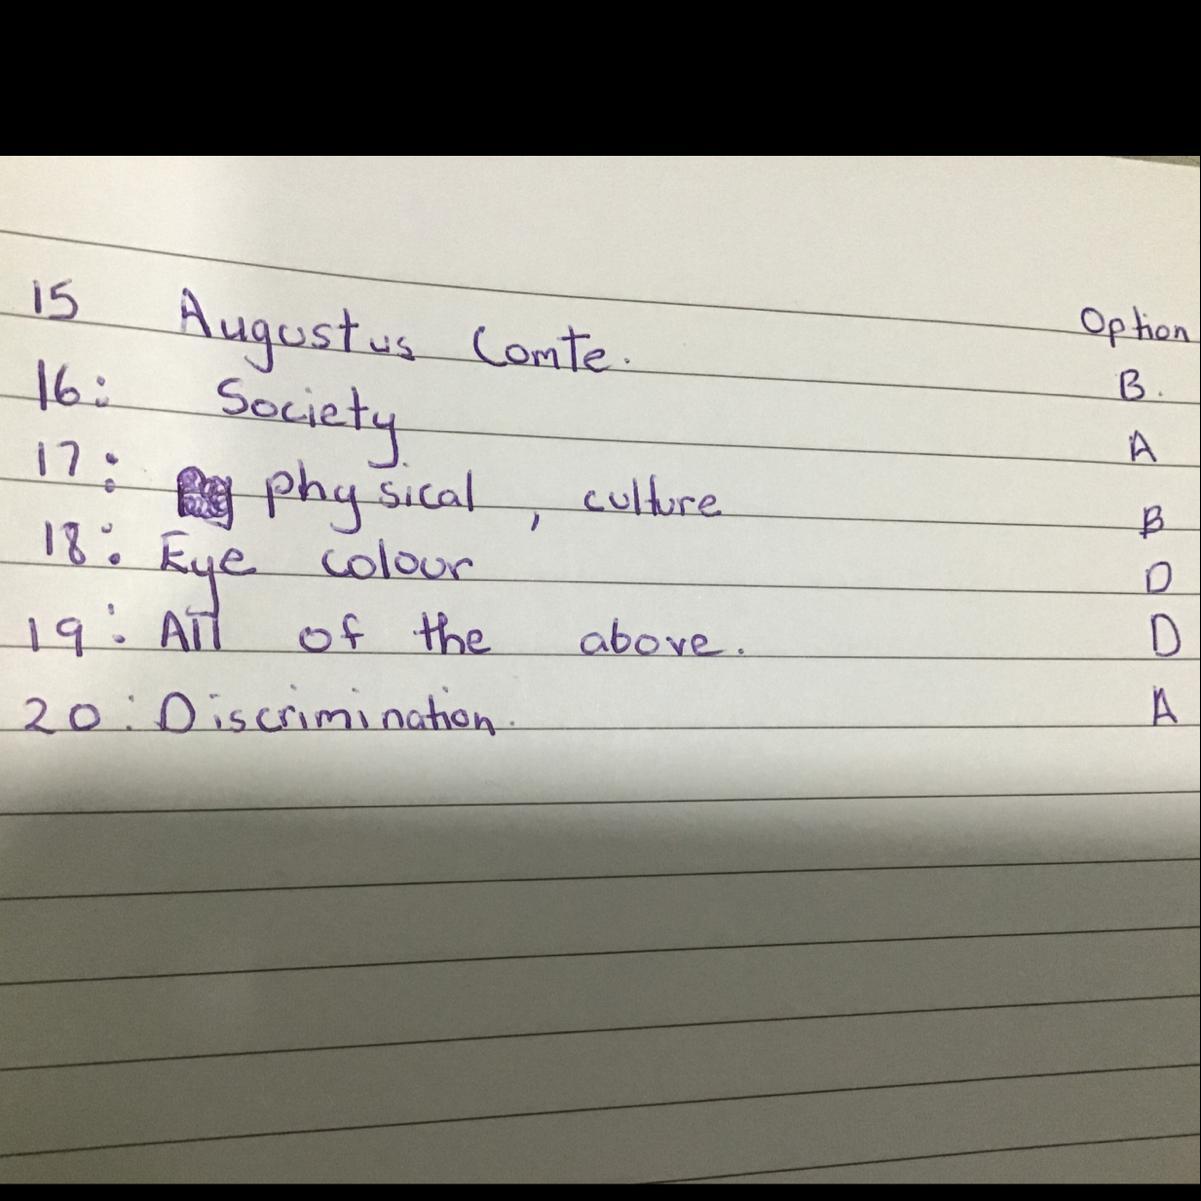 15 Augustus Comte. Option
16: Society B.
17: physical, culture A
18: Eye colour B
19: All of the above. D
20: Discrimination. D
A